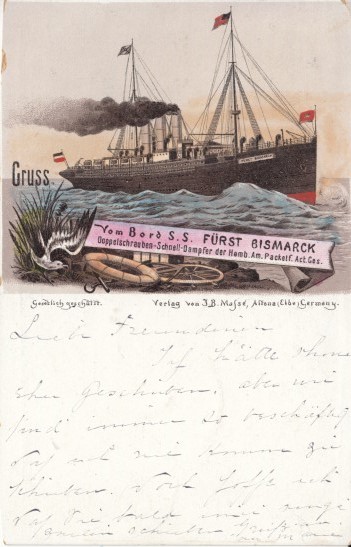 Gruss.
Vom Bord S.S. FÜRST BISMARCK
Doppelschrauben-Schnell-Dampfer der Hamb. Am. Packetf. Act. Ges.
Gesetzlich geschützt. Verlag von J.B. Massé, Altona (Elbe), Germany.
Lieb Freundinen
Ich hätte schone
eher geschrieben. aber wir
sind immer so beschäftig
Das ich nie komme zu
schreiben. hoffe ich
Das Sie bald mir einige
schreiben